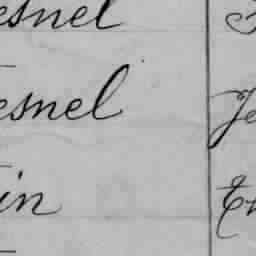 esnel
esnel Je
in En